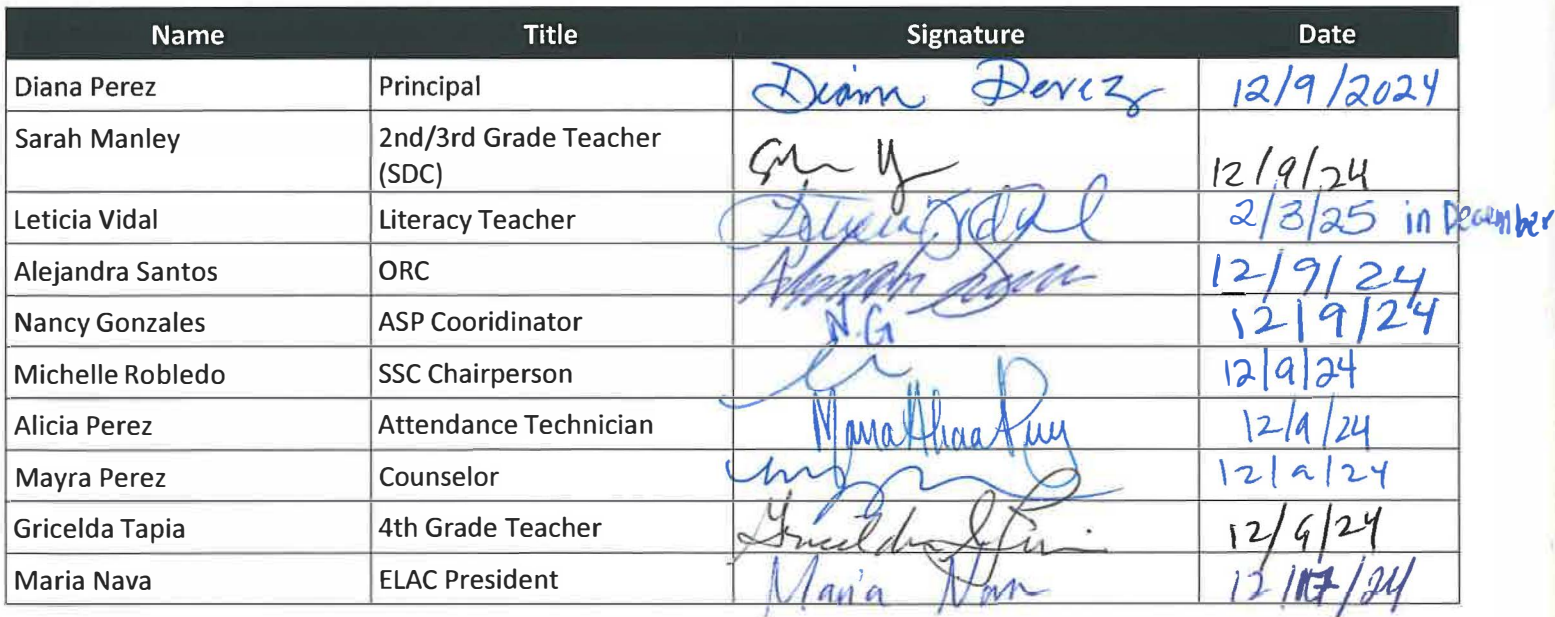 Name Title Signature Date
Diana Perez Principal Diana Perez 12/9/2024
Sarah Manley 2nd/3rd Grade Teacher
(SDC) 12/9/24
Leticia Vidal Literacy Teacher Leticia Vidal 2/3/25 in December
Alejandra Santos ORC 12/9/24
Nancy Gonzales ASP Cooridinator N.G 12/9/24
Michelle Robledo SSC Chairperson 12/9/24
Alicia Perez Attendance Technician 12/9/24
Mayra Perez Counselor 12/9/24
Gricelda Tapia 4th Grade Teacher Gricelda 12/9/24
Maria Nava ELAC President Maria Nava 12/17/24